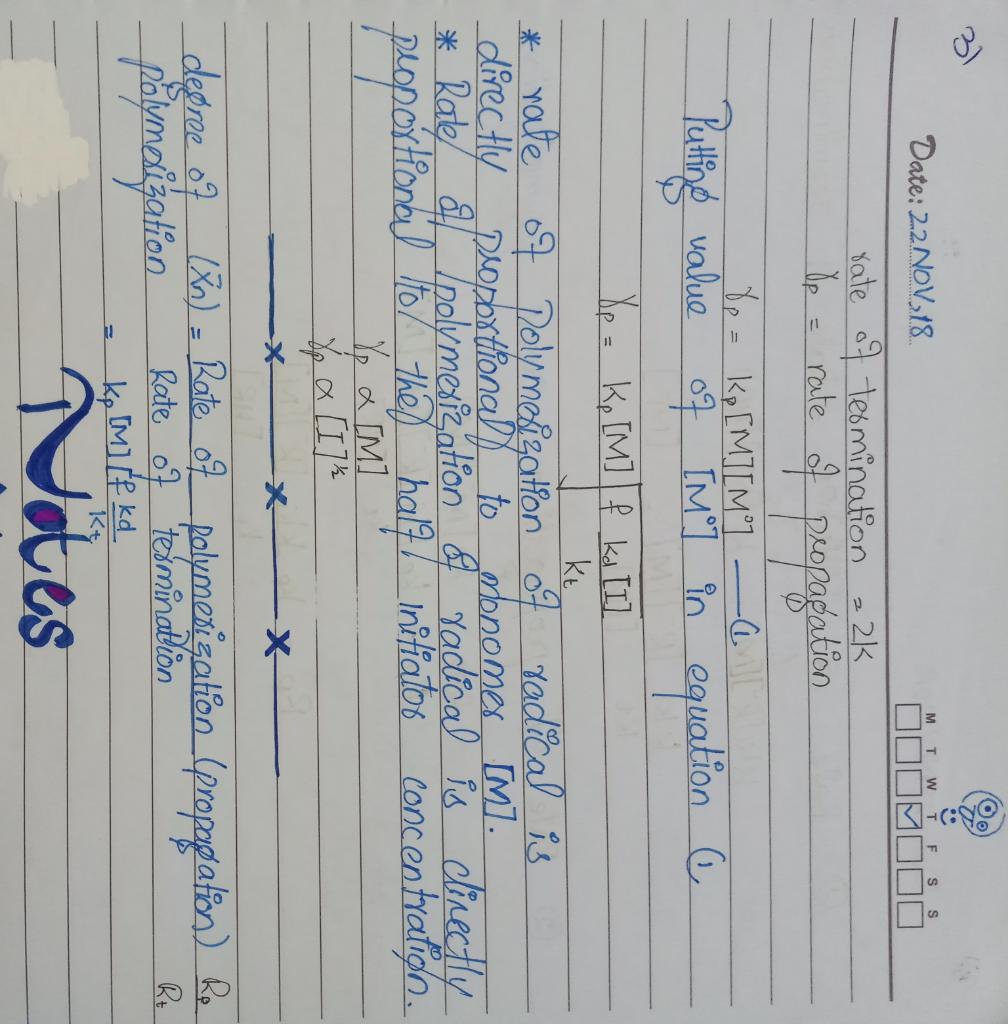 3)
Date: 22 NOV, 18
M T W T F S S
rate of termination = 2K
γp = rate of propagation
γp = kp [M][M°] — (1
Putting value of [M°] in equation (1
γp = kp [M] √ f kd [I]
kt
* rate of Polymerization of radical is
directly proportional to monomer [M].
* Rate of polymerization of radical is directly
proportional to the half initiator concentration.
γp α [M]
γp α [I]½
degree of (x̄n) = Rate of polymerization (propagation) Rp
Polymerization Rate of termination Rt
= kp [M] [f kd
kt
Notes